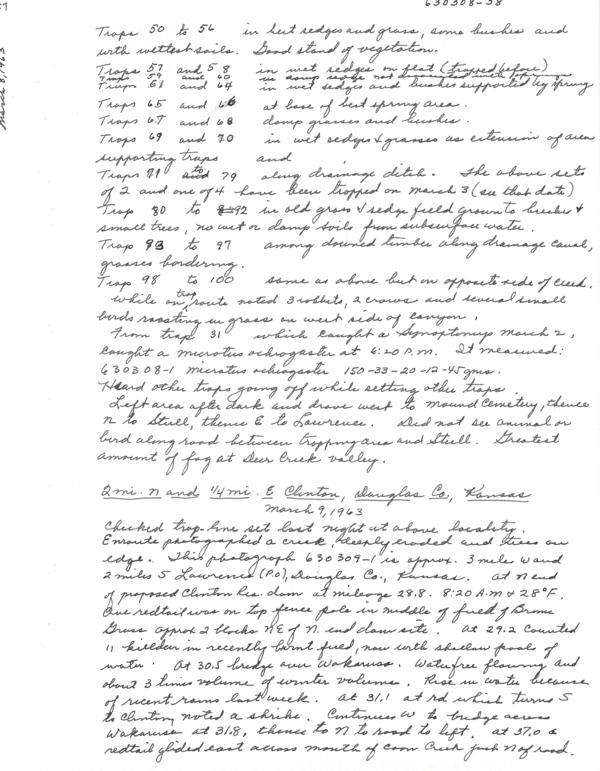 630308-38
March 8, 1963
Traps 50 to 56 in wet sedges and grass, some bushes and
with wettest soils. Good stand of vegetation.
Traps 57 and 58 in wet sedges on flat (trapped before)
Traps 59 and 60 in damp sedge not
Traps 61 and 64 in wet sedges and bushes supported by spring
Traps 65 and 66 at base of bent spring area.
Traps 67 and 68 damp grasses and bushes.
Traps 69 and 70 in wet sedges & grasses as extension of area
supporting traps and
Traps 71 to 79 along drainage ditch. The above sets
of 2 and one of 4 have been trapped on March 3 (see that date)
Trap 80 to 92 in old grass & sedge field grown to brushes &
small trees, no wet or damp soils from subsurface water.
Trap 93 to 97 among downed timber along drainage canal,
grasses bordering.
Trap 98 to 100 same as above but on opposite side of creek.
while on trap route noted 3 rabbits, 2 crows and several small
birds roosting in grass on west side of canyon.
From trap 31 which caught a Synaptomys March 2,
caught a microtus ochrogaster at 6:20 P.M. It measured:
630308-1 microtus ochrogaster 150-33-20-12-45 gms.
Heard other traps going off while setting other traps.
Left area after dark and drove west to Mound Cemetery, thence
N to Stull, thence E to Lawrence. Did not see animal or
bird along road between trapping area and Stull. Greatest
amount of fog at Deer Creek valley.
2 mi. N and 1/4 mi. E Clinton, Douglas Co., Kansas
March 9, 1963
Checked trap-line set last night at above locality.
Enroute photographed a creek, deeply eroded and trees on
edge. This photograph 630309-1 is approx. 3 miles W and
2 miles S Lawrence (P.O), Douglas Co., Kansas. At N end
of proposed Clinton Res. dam at mileage 28.8. 8:20 A.M & 28°F.
One redtail was on top fence pole in middle of field of Brome
Grass approx 2 blocks NE of N. end dam site. At 29.2 counted
11 killdeer in recently burnt field, now with shallow pools of
water. At 30.5 bridge over Wakarusa. Water free flowing and
about 3 times volume of winter volumes. Rise in water because
of recent rains last week. At 31.1 at rd which turns S
to Clinton, noted a shrike. Continues W to bridge across
Wakarusa at 31.8, thence to N to road to left. at 37.0 a
redtail glided east across mouth of Coon Creek just N of road.